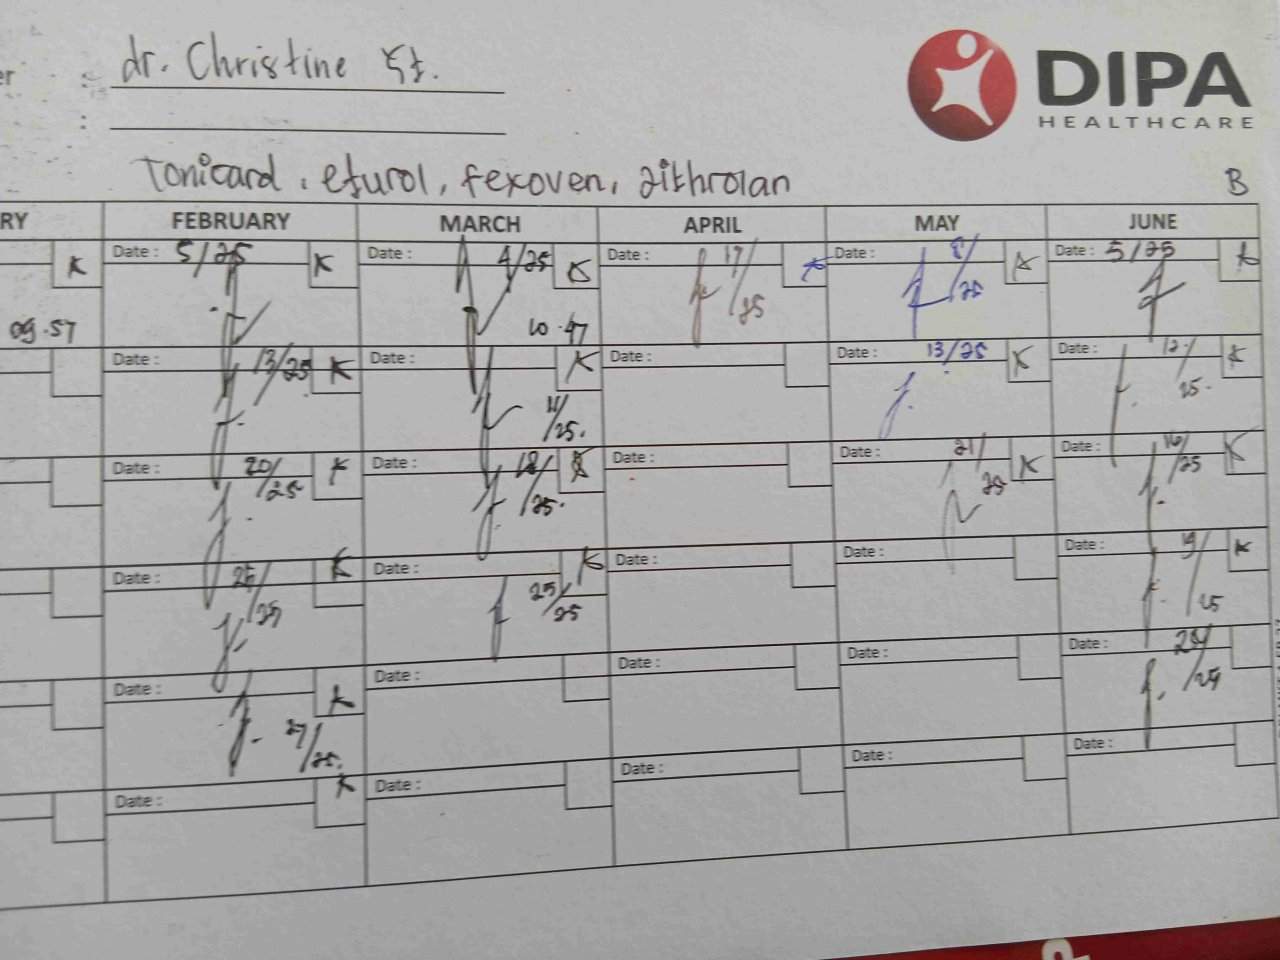 er : dr. Christine
:
DIPA
HEALTHCARE
Tonicard, efurol, fexoven, zithrolan B
RY FEBRUARY MARCH APRIL MAY JUNE
K Date : 5/25 K Date : 4/25 K Date : 17/25 K Date : 8/25 K Date : 5/25 K
09.57 10.47
Date : 13/25 K Date : 11/25. K Date : Date : 13/25 K Date : 12/25. K
Date : 20/25 K Date : 18/25. K Date : Date : 21/25 K Date : 16/25 K
Date : 25/25 K Date : 25/25 K Date : Date : Date : 19/25 K
Date : 27/25. K Date : Date : Date : Date :
Date : K Date : Date : Date : Date :